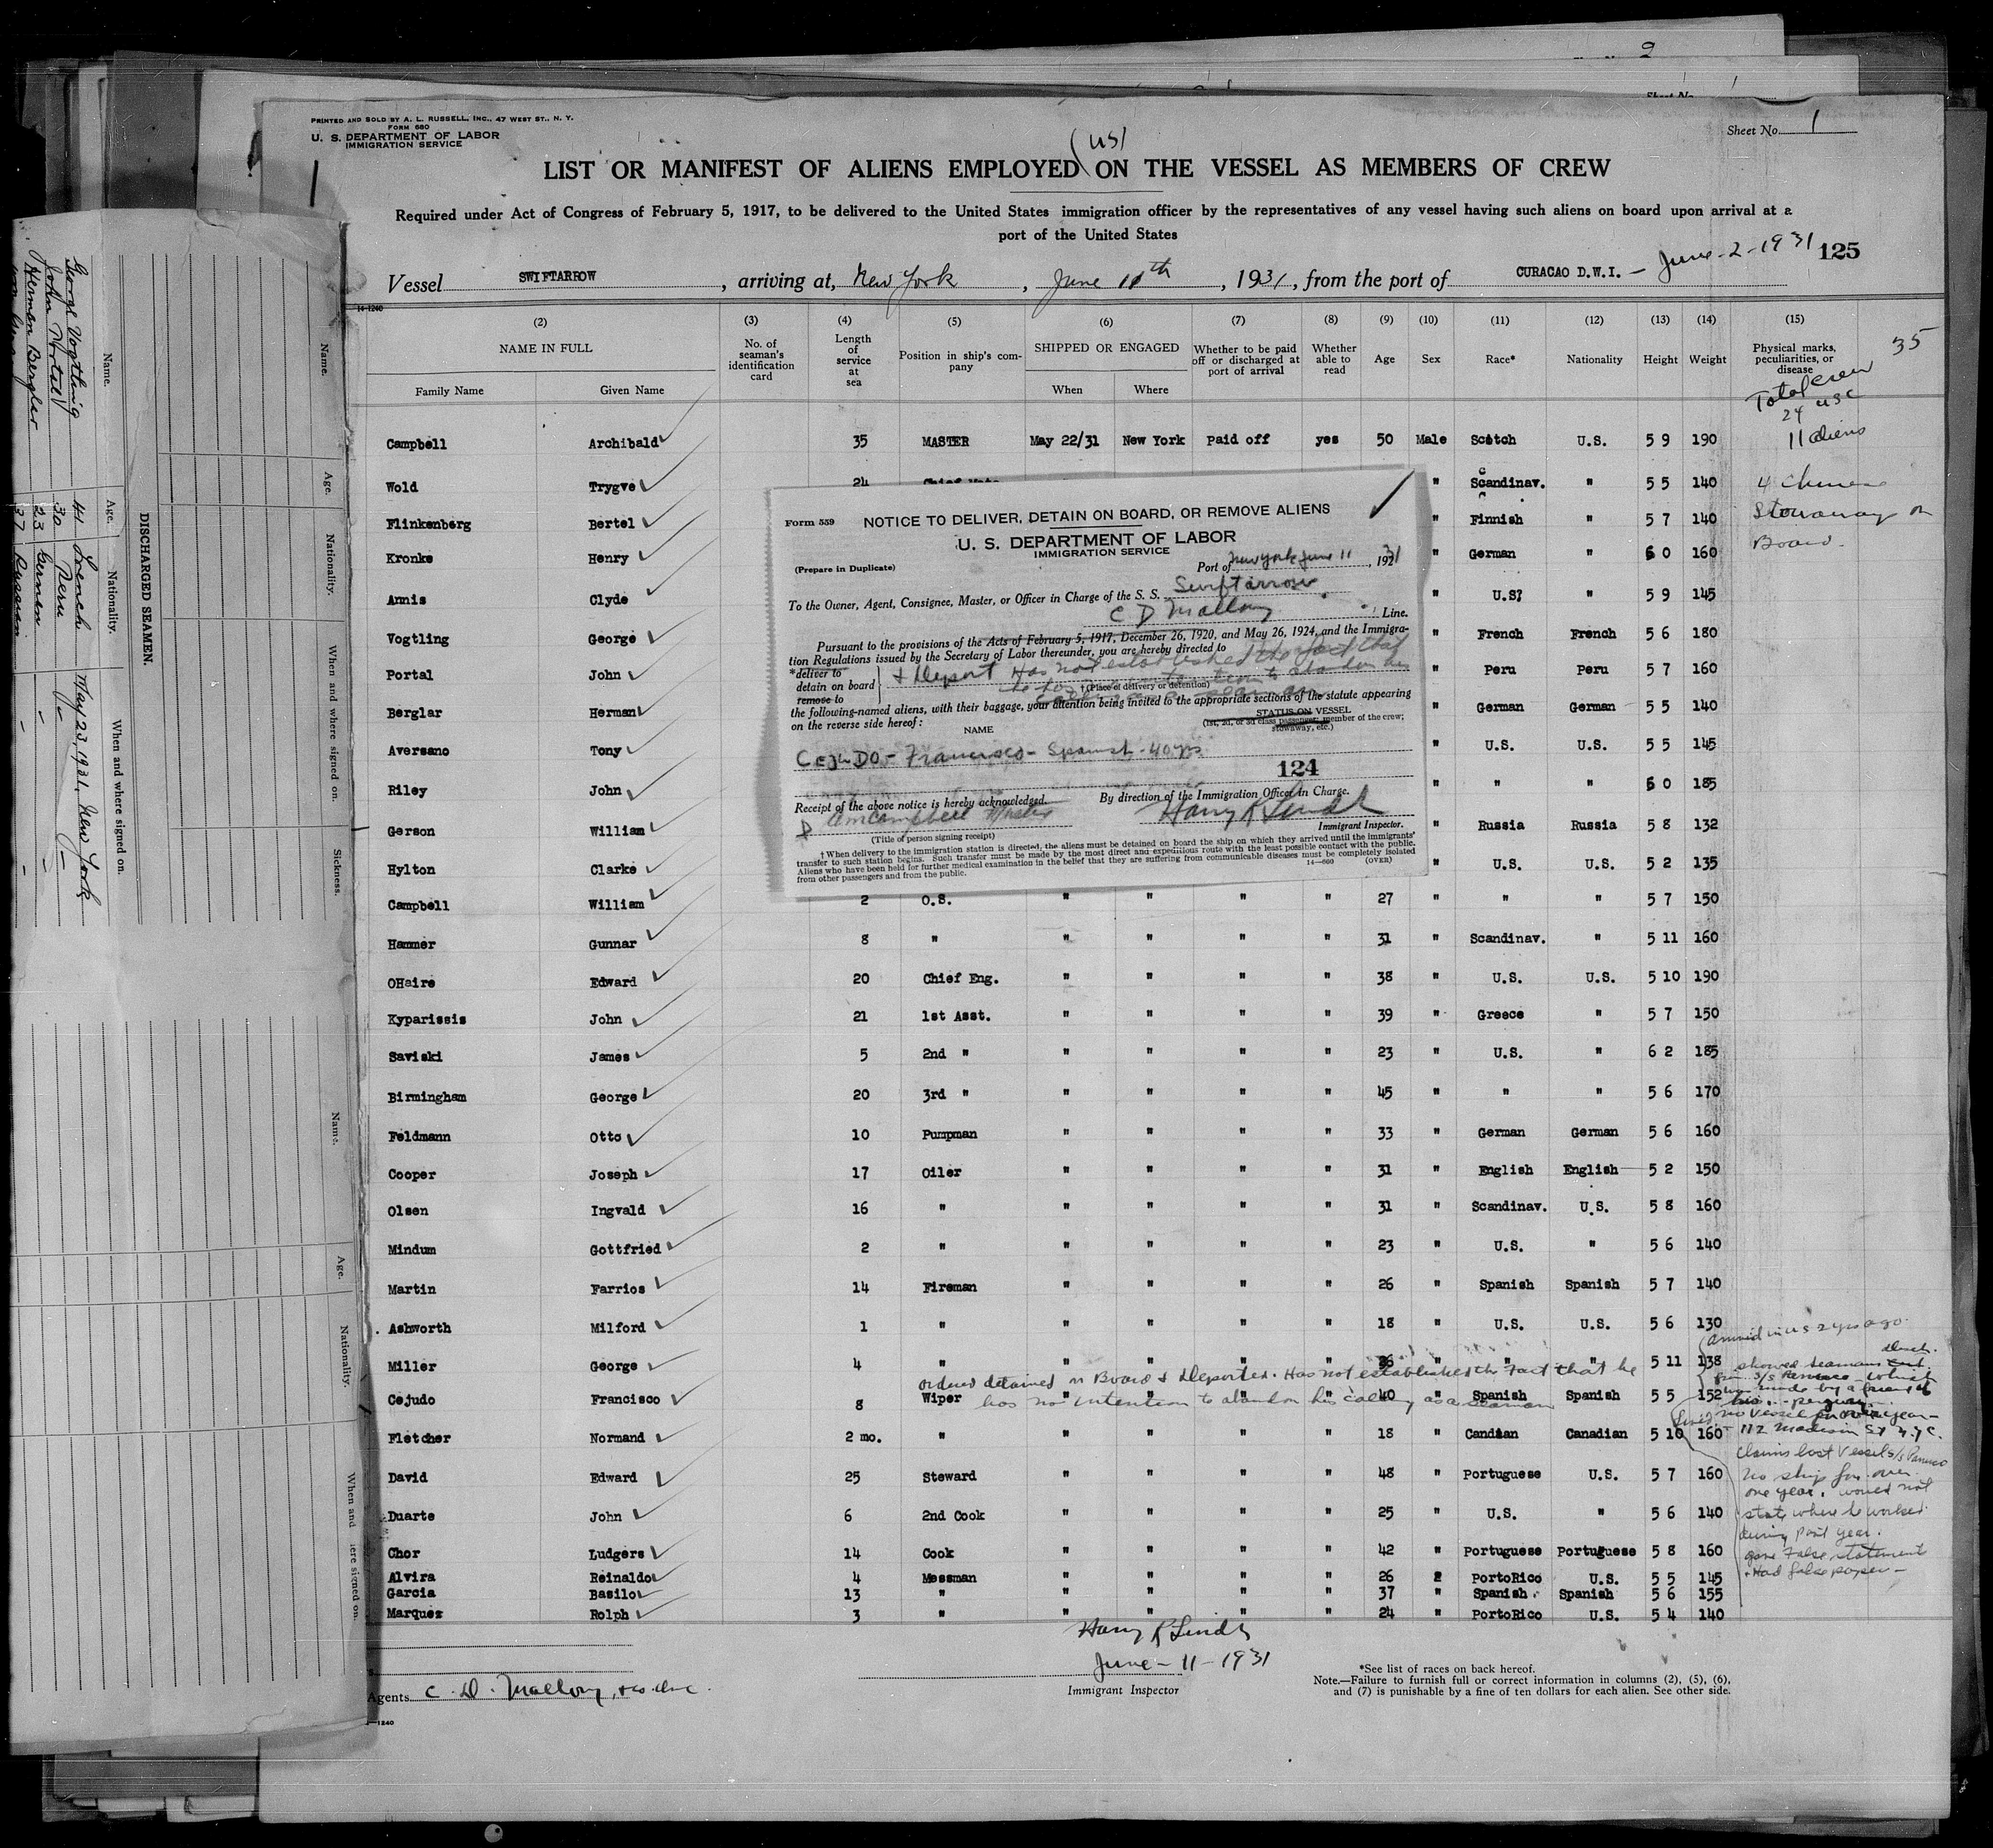 2
Sheet No.
PRINTED AND SOLD BY A. L. RUSSELL, INC., 47 WEST ST., N. Y.
FORM 680
U. S. DEPARTMENT OF LABOR
IMMIGRATION SERVICE
Sheet No. 1
LIST OR MANIFEST OF ALIENS EMPLOYED ON THE VESSEL AS MEMBERS OF CREW
Required under Act of Congress of February 5, 1917, to be delivered to the United States immigration officer by the representatives of any vessel having such aliens on board upon arrival at a
port of the United States
125
Vessel SWIFTARROW, arriving at, New York, June 11th, 1931, from the port of CURACAO D.W.I. - June-2-1931
14-1240
(2) (3) (4) (5) (6) (7) (8) (9) (10) (11) (12) (13) (14) (15)
NAME IN FULL
Family Name Given Name
No. of seaman's identification card
Length of service at sea
Position in ship's company
SHIPPED OR ENGAGED
When Where
Whether to be paid off or discharged at port of arrival
Whether able to read
Age Sex Race* Nationality Height Weight
Physical marks, peculiarities, or disease
35
Total crew
24 usc
11 aliens
4 Chinese
Stowaway on
Board.
Campbell Archibald 35 MASTER May 22/31 New York Paid off yes 50 Male Scotch U.S. 5 9 190
Wold Trygve 24 Chief Mate " Scandinav. " 5 5 140
Flinkenberg Bertel " Finnish " 5 7 140
Kronke Henry " German " 6 0 160
Annis Clyde " U.S? " 5 9 145
Vogtling George " French French 5 6 180
Portal John " Peru Peru 5 7 160
Berglar Herman " German German 5 5 140
Aversano Tony " U.S. U.S. 5 5 145
Riley John " " " 6 0 185
Gerson William " Russia Russia 5 8 132
Hylton Clarke " U.S. U.S. 5 2 135
Campbell William 2 O.S. " " " " 27 " " " 5 7 150
Hammer Gunnar 8 " " " " " 31 " Scandinav. " 5 11 160
OHaire Edward 20 Chief Eng. " " " " 38 " U.S. U.S. 5 10 190
Kyparissis John 21 1st Asst. " " " " 39 " Greece " 5 7 150
Saviski James 5 2nd " " " " " 23 " U.S. " 6 2 185
Birmingham George 20 3rd " " " " " 45 " " " 5 6 170
Feldmann Otto 10 Pumpman " " " " 33 " German German 5 6 160
Cooper Joseph 17 Oiler " " " " 31 " English English 5 2 150
Olsen Ingvald 16 " " " " " 31 " Scandinav. U.S. 5 8 160
Mindum Gottfried 2 " " " " " 23 " U.S. " 5 6 140
Martin Farrios 14 Fireman " " " " 26 " Spanish Spanish 5 7 140
Ashworth Milford 1 " " " " " 18 " U.S. U.S. 5 6 130
Miller George 4 " " " " " 36 " " " 5 11 138
ordered detained on Board & Deported. Has not established the fact that he
Cejudo Francisco 8 Wiper " " " " 40 " Spanish Spanish 5 5 152
has no intention to abandon his calling as a seaman
Fletcher Normand 2 mo. " " " " " 18 " Candian Canadian 5 10 160
David Edward 25 Steward " " " " 48 " Portuguese U.S. 5 7 160
Duarte John 6 2nd Cook " " " " 25 " U.S. " 5 6 140
Chor Ludgers 14 Cook " " " " 42 " Portuguese Portuguese 5 8 160
Alvira Reinaldo 4 Messman " " " " 26 2 PortoRico U.S. 5 5 145
Garcia Basilo 13 " " " " " 37 " Spanish Spanish 5 6 155
Marquez Rolph 3 " " " " " 24 " PortoRico U.S. 5 4 140
arrived in U S 2 yrs ago.
showed seamans
from S/S Panuco which
was made by a friend of
no vessel for over year -
112 Madison St N.Y.C.
claims lost vessel S/S Panuco
no ship for over
one year. would not
state where he worked
during past year.
gave False statement
+ Had false paper -
Form 559
NOTICE TO DELIVER, DETAIN ON BOARD, OR REMOVE ALIENS
U. S. DEPARTMENT OF LABOR
IMMIGRATION SERVICE
(Prepare in Duplicate)
Port of New York June 11, 1931
To the Owner, Agent, Consignee, Master, or Officer in Charge of the S. S. Swiftarrow
C D Mallory Line.
Pursuant to the provisions of the Acts of February 5, 1917, December 26, 1920, and May 26, 1924, and the Immigra-
tion Regulations issued by the Secretary of Labor thereunder, you are hereby directed to
*deliver to
detain on board
remove to
& Deport Has not established the fact that
†(Place of delivery or detention)
the following-named aliens, with their baggage, your attention being invited to the appropriate sections of the statute appearing
on the reverse side hereof:
NAME
STATUS ON VESSEL
(1st, 2d, or 3d class passenger; member of the crew; stowaway, etc.)
CEJUDO - Francisco - Spanish - 40 yrs.
124
Receipt of the above notice is hereby acknowledged.
By direction of the Immigration Officer in Charge.
AmCampbell Master
Harry R Lindh
(Title of person signing receipt)
Immigrant Inspector.
†When delivery to the immigration station is directed, the aliens must be detained on board the ship on which they arrived until the immigrants'
transfer to such station begins. Such transfer must be made by the most direct and expeditious route with the least possible contact with the public.
Aliens who have been held for further medical examination in the belief that they are suffering from communicable diseases must be completely isolated
from other passengers and from the public.
14-660
(OVER)
Harry R Lindh
June - 11 - 1931
Immigrant Inspector
Agents C. D. Mallory, & Co. Inc.
*See list of races on back hereof.
Note.—Failure to furnish full or correct information in columns (2), (5), (6),
and (7) is punishable by a fine of ten dollars for each alien. See other side.
DISCHARGED SEAMEN.
Name. Age. Nationality. When and where signed on.
George Vogtling 41 French May 23, 1931, New York
John Portal 30 Peru
Herman Berglar 23 German
37 Russian
Name. Age. Nationality. When and where signed on. Sickness.
Name. Age. Nationality. When and where signed on.